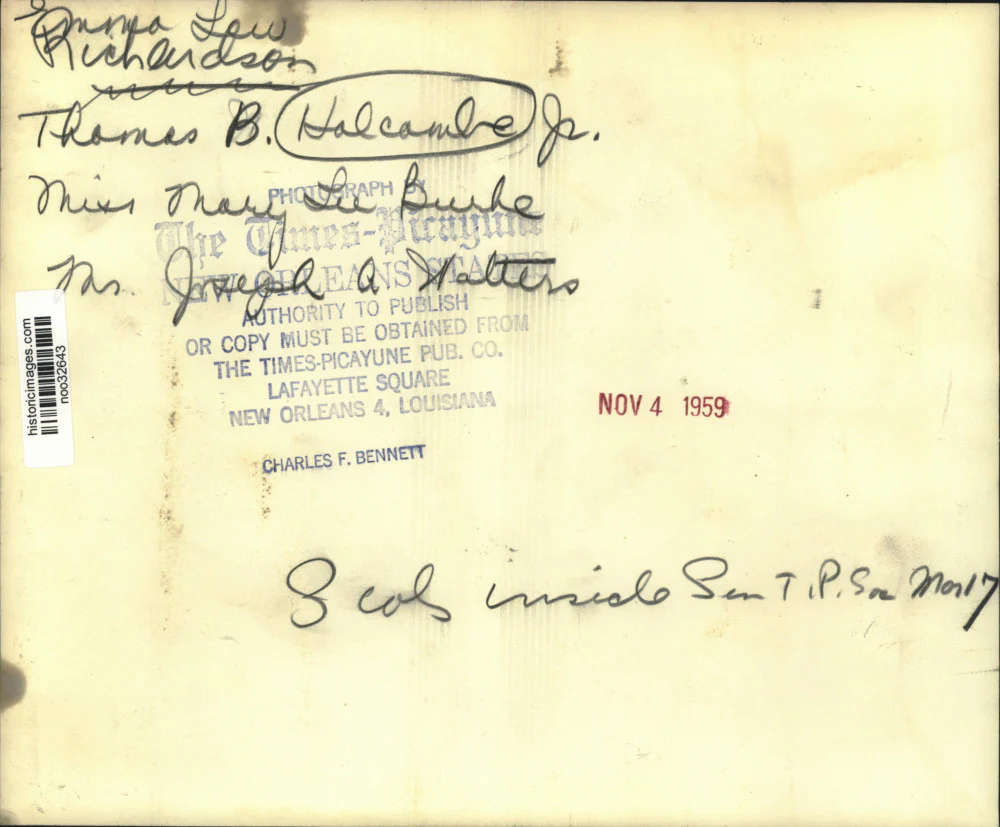 Emma Lou
Richardson
Thomas B. Holcombe Jr.
Miss Mary Lee Burke
Mr. Joseph A Walters
PHOTOGRAPH BY
The Times-Picayune
NEW ORLEANS STATES
AUTHORITY TO PUBLISH
OR COPY MUST BE OBTAINED FROM
THE TIMES-PICAYUNE PUB. CO.
LAFAYETTE SQUARE
NEW ORLEANS 4, LOUISIANA
CHARLES F. BENNETT
NOV 4 1959
historicimages.com
noo32643
3 cols inside Sun T.P. Soc